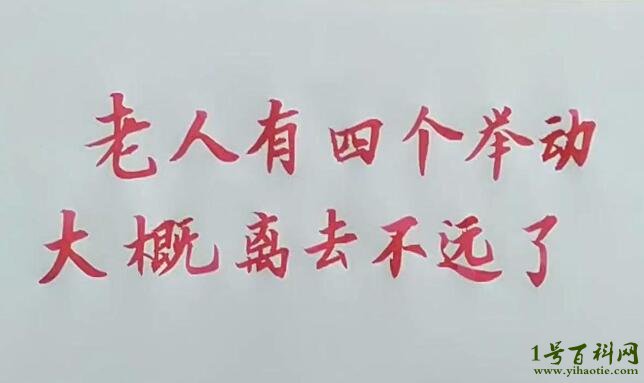 老人有四个举动
大概离去不远了
1号百科网
www.yihaotie.com